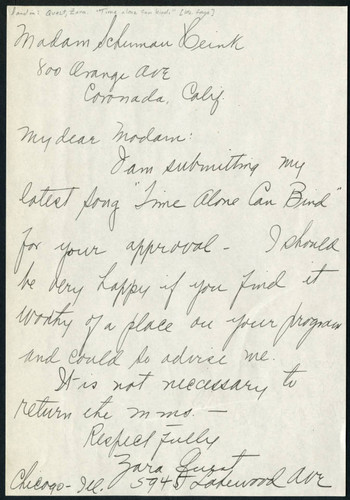 Madam Schuman Heink
800 Orange Ave
Coronada, Calif.
My dear Madam:
I am submitting my
latest song "Time Alone Can Bind"
for your approval - I should
be very happy if you find it
worthy of a place on your program
and could so advise me.
It is not necessary to
return the mms. —
Respectfully
Zara
Chicago - Ill. 5945 Lakewood Ave